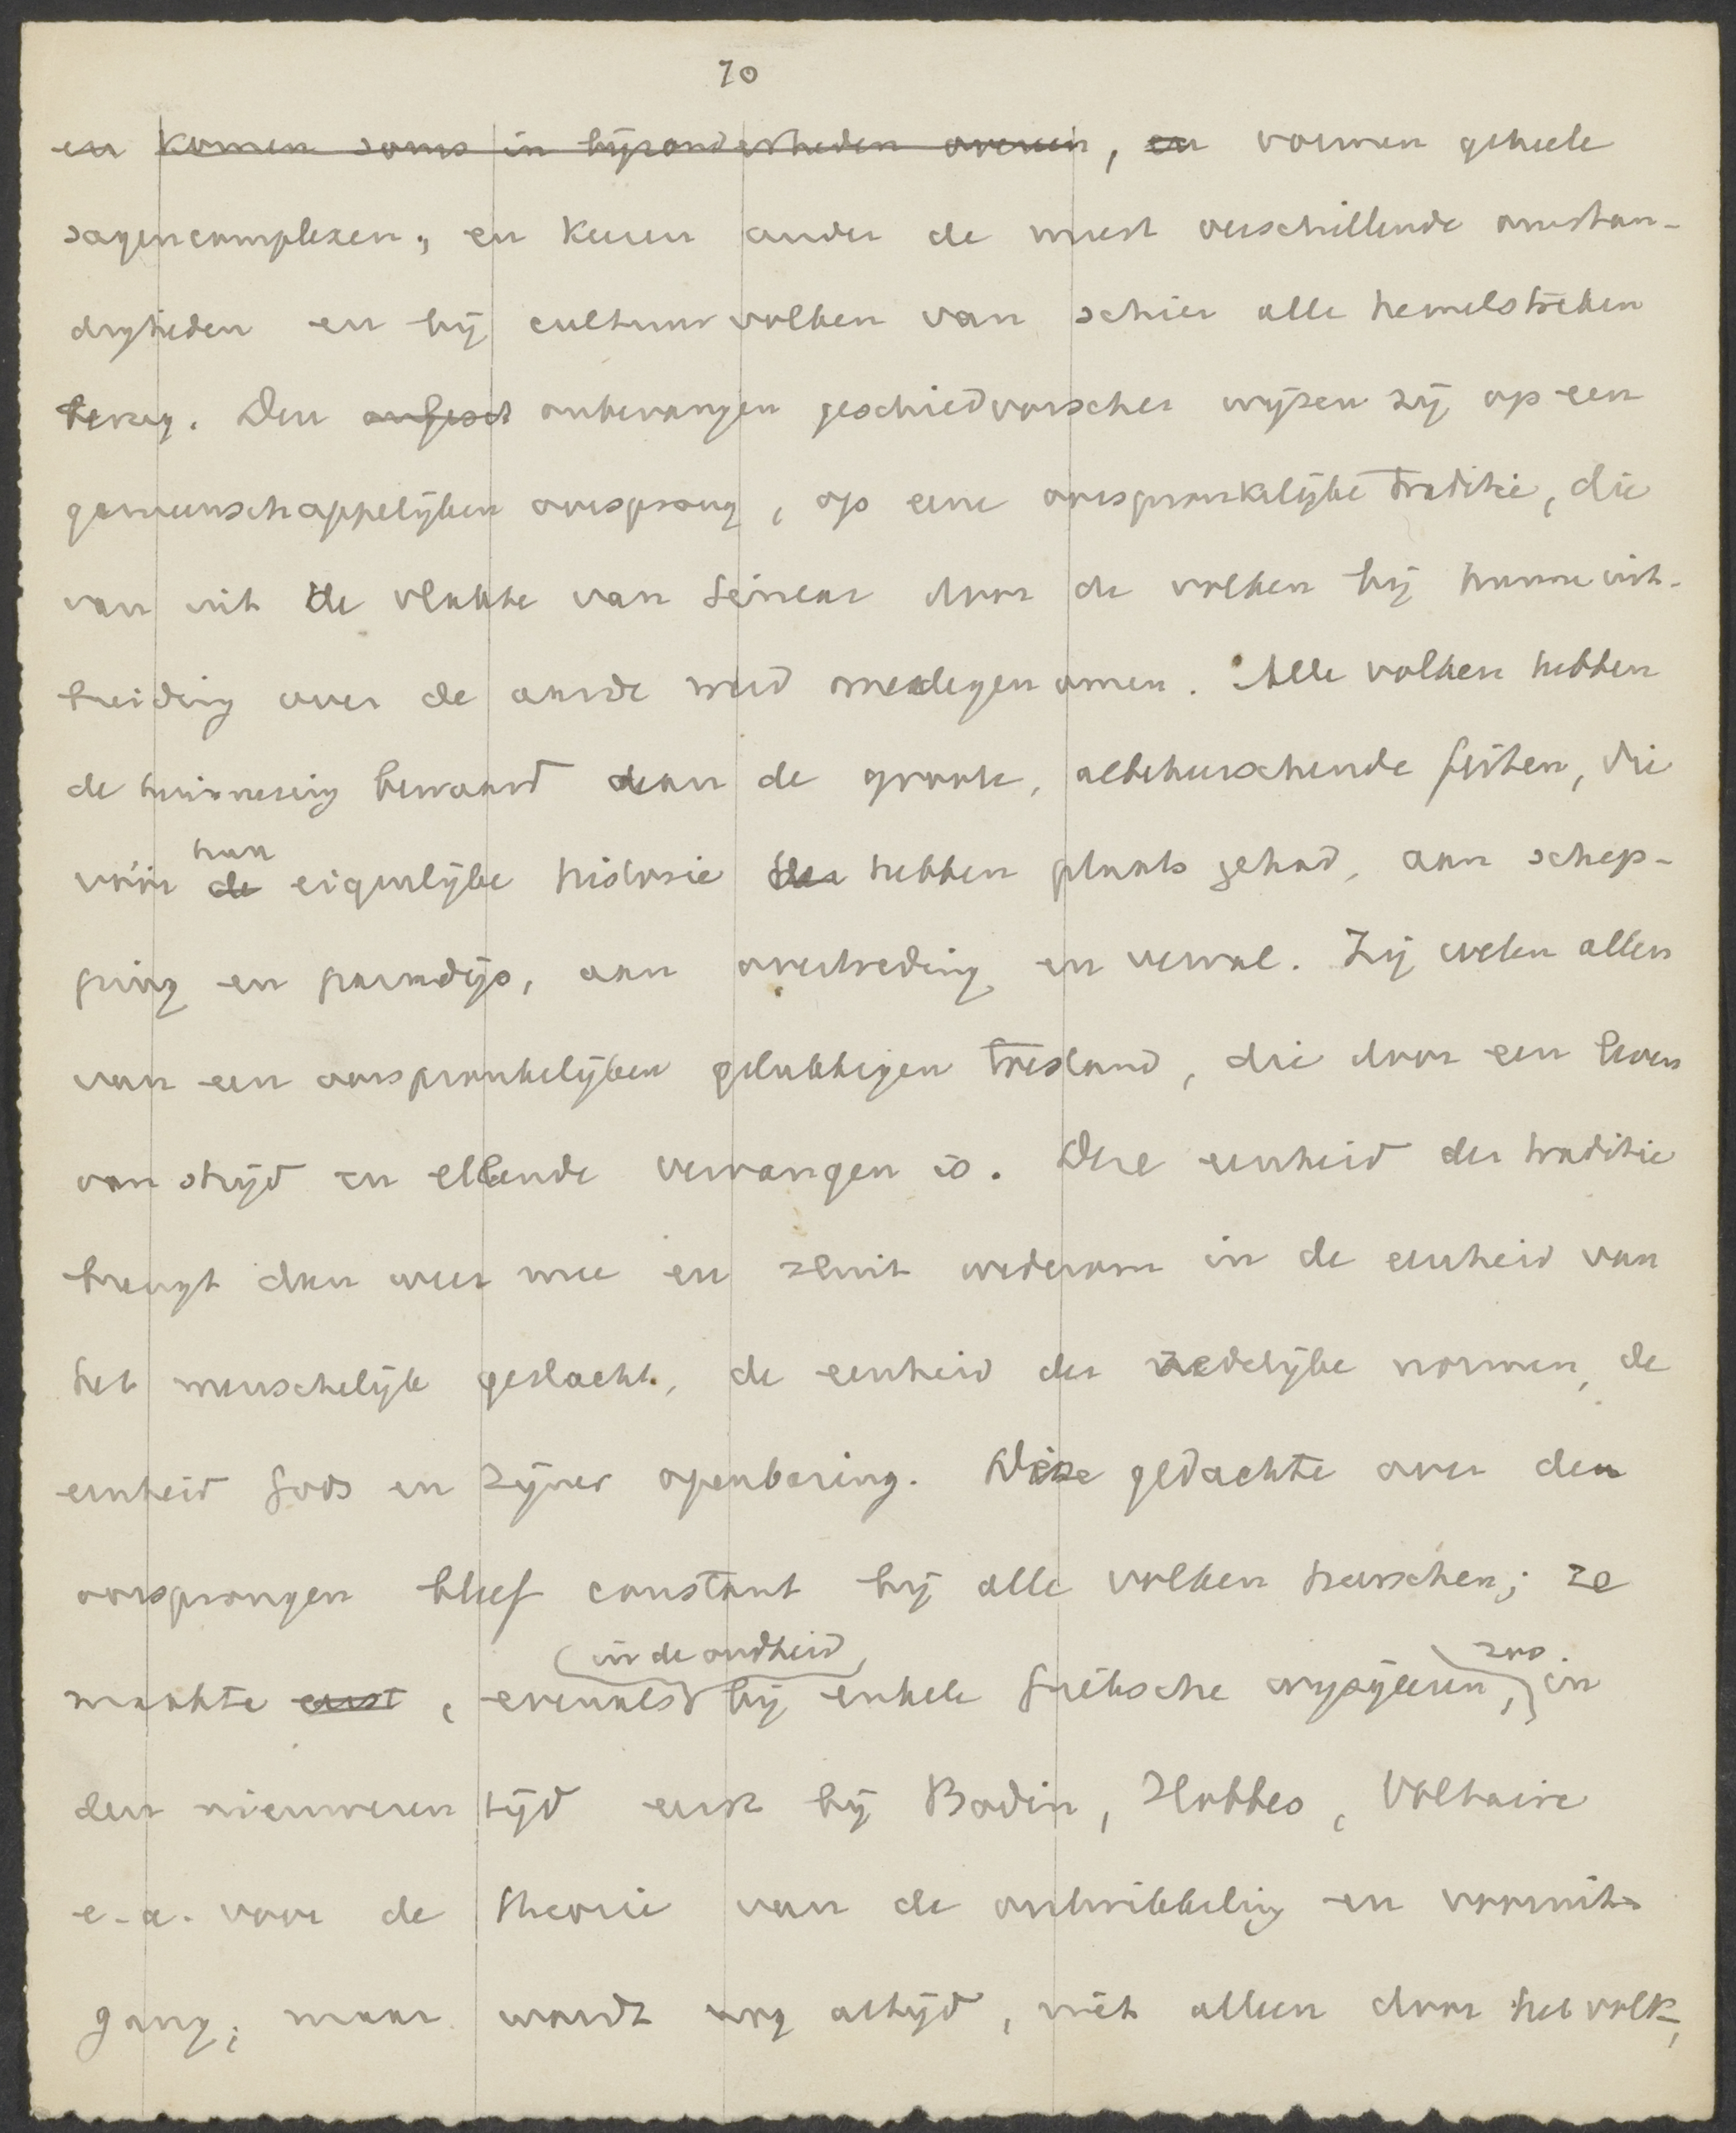 70
en komen soms in bijzonderheden overeen, en vormen geheele
sagencomplexen, en keeren onder de meest verschillende omstan-
digheden en bij cultuurvolken van schier alle hemelstreken
terug. Den onbevangen geschiedvorscher wijzen zij op een
gemeenschappelijken oorsprong, op eene oorspronkelijke traditie, die
van uit de vlakte van Sinear door de volken bij hunne uit-
breiding over de aarde werd medegenomen. Alle volken hebben
de herinnering bewaard aan de groote, albeheerschende feiten, die
hun
vóór de eigenlijke historie hebben plaats gehad, aan schep-
ping en paradijs, aan overtreding en verval. Zij weten allen
van een oorspronkelijken gelukkigen toestand, die door een leven
van strijd en ellende vervangen is. Deze eenheid der traditie
brengt dan weer mee en sluit wederom in de eenheid van
het menschelijk geslacht, de eenheid der zedelijke normen, de
eenheid Gods en zijner openbaring. Deze gedachte over den
oorsprongen bleef constant bij alle volken heerschen; ze
in de oudheid zoo
maakte eerst, evenals bij enkele Grieksche wijsgeeren, in
den nieuweren tijd eerst bij Bodin, Hobbes, Voltaire
e.a. voor de theorie van de ontwikkeling en vooruit-
gang; maar wordt nog altijd, niet alleen door het volk,